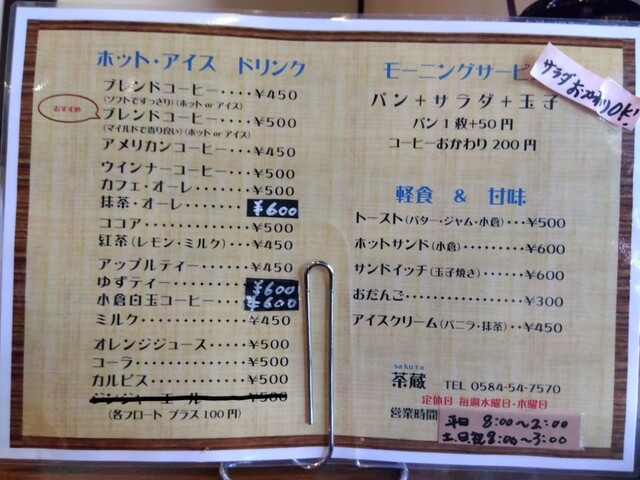 ホット・アイス ドリンク
ブレンドコーヒー････¥450
(ソフトですっきり)(ホット or アイス)
おすすめ
ブレンドコーヒー････¥500
(マイルドで香り良い)(ホット or アイス)
アメリカンコーヒー･･¥450
ウインナーコーヒー･･¥500
カフェ・オーレ･･･････¥500
抹茶・オーレ････････¥600
ココア･･････････････¥500
紅茶(レモン・ミルク)･･･¥450
アップルティー･･････¥450
ゆずティー･････････¥600
小倉白玉コーヒー････¥600
ミルク･････････････¥450
オレンジジュース････¥500
コーラ････････････¥500
カルピス･･････････¥500
ジンジャーエール････¥500
(各フロート プラス 100円)
モーニングサービ
サラダおかわりOK!
パン+サラダ+玉子
パン1枚+50円
コーヒーおかわり 200円
軽食 & 甘味
トースト(バター・ジャム・小倉)･･･¥500
ホットサンド(小倉)････････¥600
サンドイッチ(玉子焼き)･････¥600
おだんご･･････････････¥300
アイスクリーム(バニラ・抹茶)･･¥450
sakura
茶蔵 TEL 0584-54-7570
定休日 毎週水曜日・木曜日
営業時間 平日 8:00～2:00
土日祝 8:00～3:00